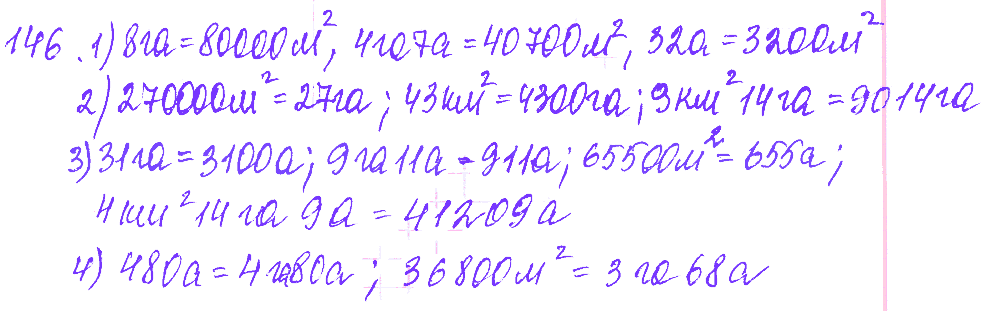 146. 1) 8га = 80000м², 4га7а = 40700м², 32а = 3200м²
2) 270000м² = 27га; 43км² = 4300га; 9км²14га = 9014га
3) 31га = 3100а; 9га11а = 911а; 65500м² = 655а;
4км²14га 9а = 41209а
4) 480а = 4га80а; 36800м² = 3га68а